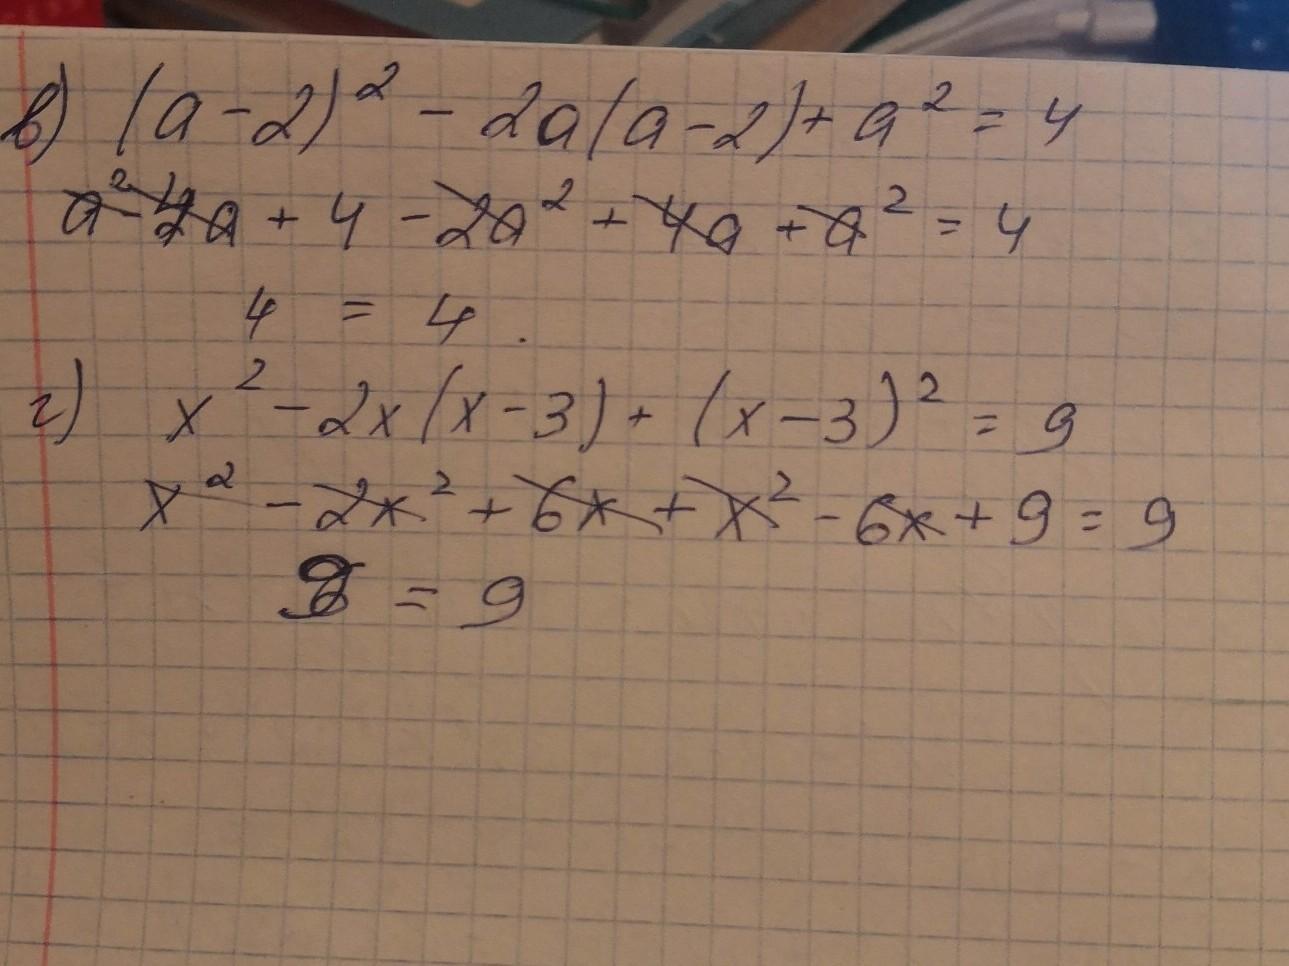 в) (a-2)² - 2a(a-2) + a² = 4
a² - 4a + 4 - 2a² + 4a + a² = 4
4 = 4.
г) x² - 2x(x-3) + (x-3)² = 9
x² - 2x² + 6x + x² - 6x + 9 = 9
9 = 9